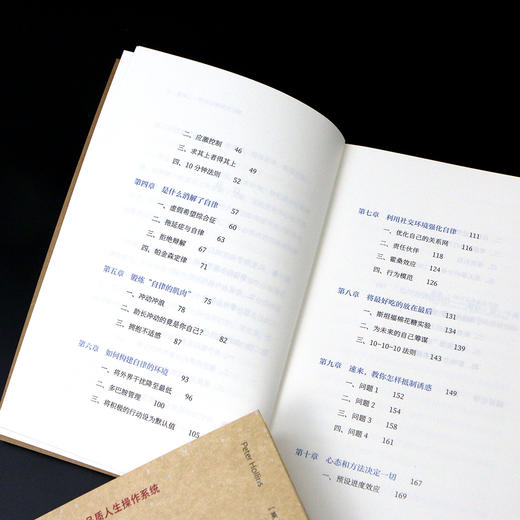 二、应激控制 46
三、求其上者得其上 49
四、10 分钟法则 52
第四章 是什么消解了自律 57
一、虚假希望综合征 60
二、拖延症与自律 63
三、拒绝辩解 67
四、帕金森定律 71
第五章 锻炼“自律的肌肉” 75
一、冲动冲浪 78
二、助长冲动的竟是你自己? 82
三、拥抱不适感 87
第六章 如何构建自律的环境 93
一、将外界干扰降至最低 96
二、多巴胺管理 100
三、将积极的行动设为默认值 105
第七章 利用社交环境强化自律 111
一、优化自己的关系网 116
二、责任伙伴 118
三、霍桑效应 124
四、行为模范 126
第八章 将最好吃的放在最后 131
一、斯坦福棉花糖实验 134
二、为未来的自己筹谋 139
三、10-10-10 法则 143
第九章 速来，教你怎样抵制诱惑 149
一、问题 1 152
二、问题 2 154
三、问题 3 158
四、问题 4 161
第十章 心态和方法决定一切 167
一、预设进度效应 169
Peter Hollins
品质人生操作系统